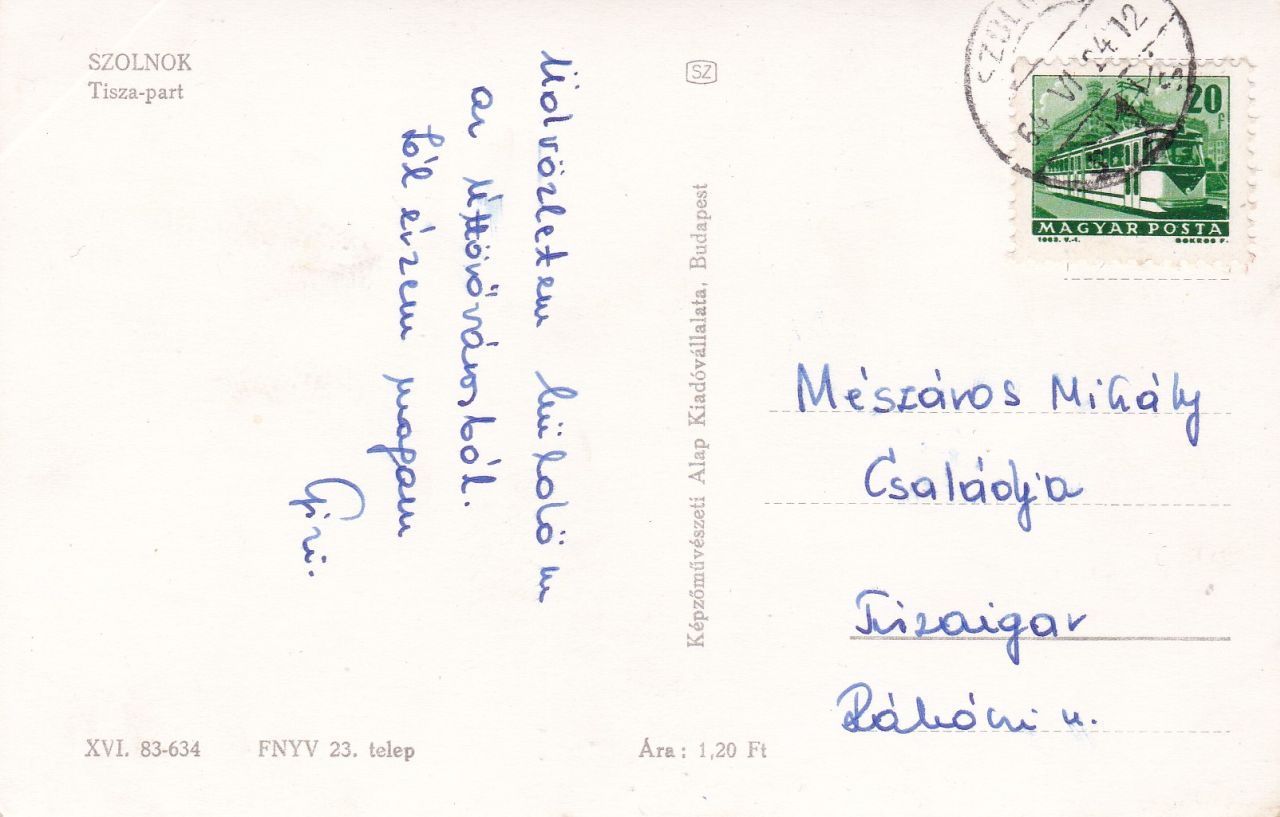 SZOLNOK
Tisza-part
Üdvözletem küldöm
az Úttörővárosból.
Jól érzem magam
Gizi.
SZ
Képzőművészeti Alap Kiadóvállalata, Budapest
64 VI 24 12
20 f
MAGYAR POSTA
1963. V.-I.
SOKROS F.
Mészáros Mihály
Családja
Tiszaigar
Rákóczi u.
XVI. 83-634 FNYV 23. telep
Ára: 1,20 Ft